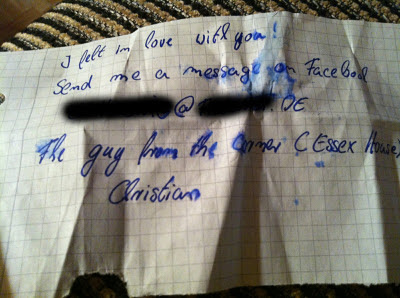 I felt in love with you!
Send me a message on Facebook
@ .DE
The guy from the corner (Essex House)
Christian